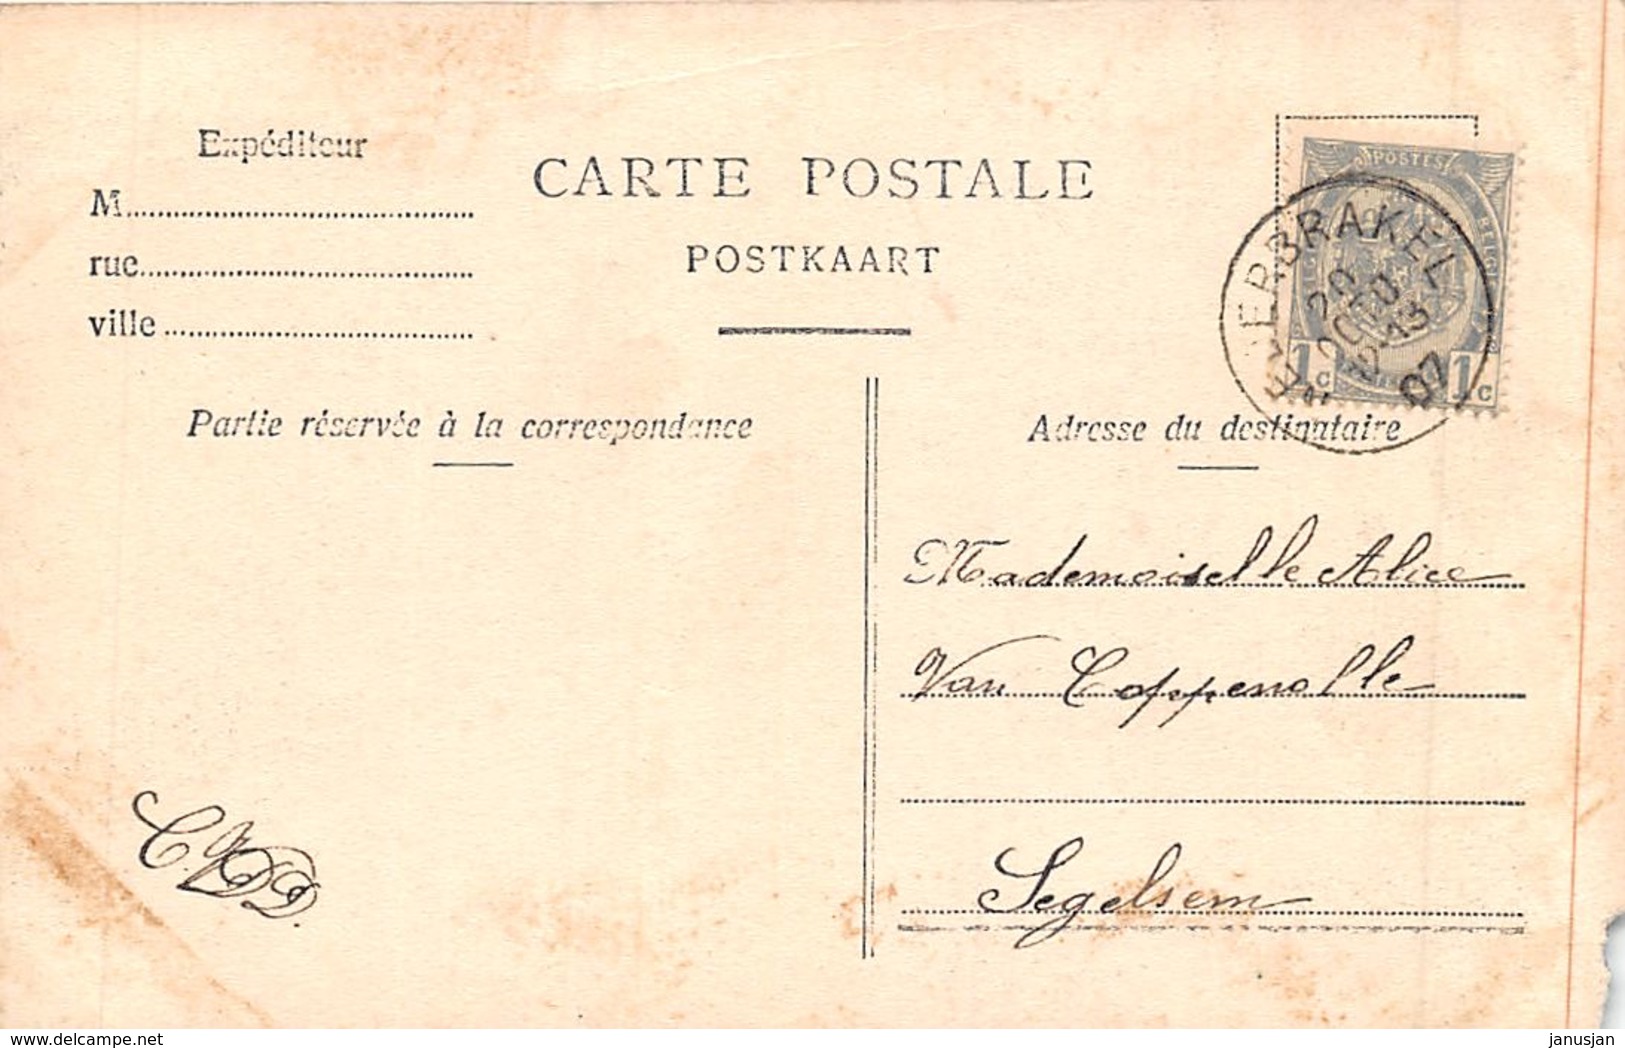 Expéditeur
M
rue
ville
CARTE POSTALE
POSTKAART
POSTES
BELGIQUE
1c 1c
20
13
07
Partie réservée à la correspondance
Adresse du destinataire
Mademoiselle Alice
Van Coppenolle
Segelsem
delcampe.net
janusjan